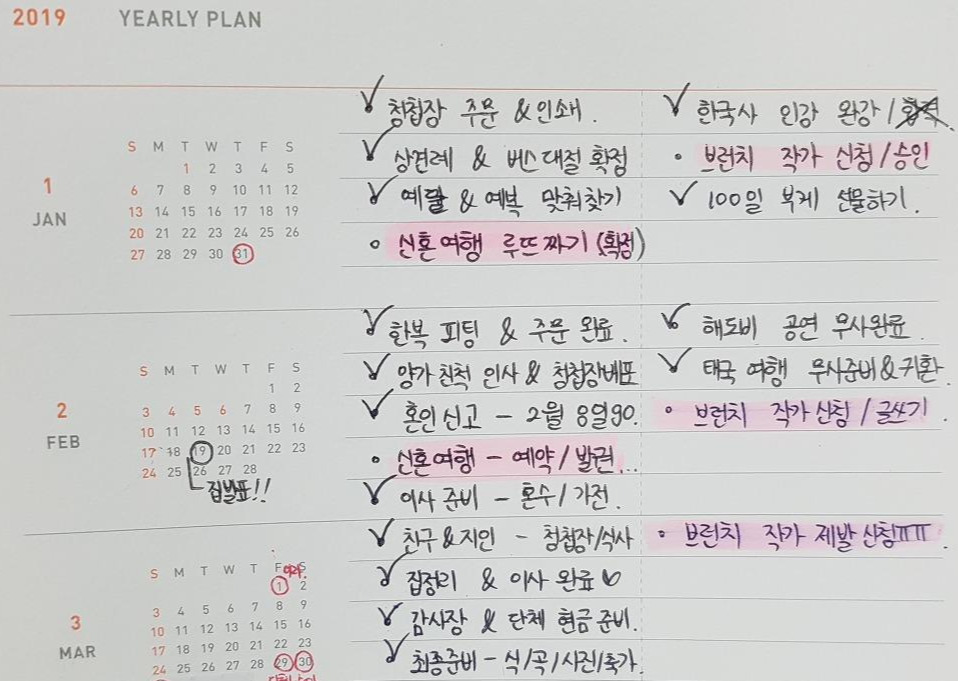 2019 YEARLY PLAN
1
JAN
S M T W T F S
1 2 3 4 5
6 7 8 9 10 11 12
13 14 15 16 17 18 19
20 21 22 23 24 25 26
27 28 29 30 31
✓ 청첩장 주문 & 인쇄.
✓ 상견례 & 버스대절 확정
✓ 예물 & 예복 맞춰찾기
• 신혼여행 루뜨짜기 (확정)
✓ 한국사 인강 완강 / 합격.
• 브런치 작가 신청 / 승인
✓ 100일 부케 선물하기.
2
FEB
S M T W T F S
1 2
3 4 5 6 7 8 9
10 11 12 13 14 15 16
17 18 19 20 21 22 23
24 25 26 27 28
집발표!!
✓ 한복 피팅 & 주문 완료.
✓ 양가친척 인사 & 청첩장배포
✓ 혼인신고 - 2월 8일 go.
• 신혼여행 - 예약 / 발권...
✓ 이사 준비 - 혼수 / 가전.
✓ 해도비 공연 무사완료
✓ 태국 여행 무사준비&귀환.
• 브런치 작가신청 / 글쓰기
3
MAR
S M T W T F S
1 2
3 4 5 6 7 8 9
10 11 12 13 14 15 16
17 18 19 20 21 22 23
24 25 26 27 28 29 30
✓ 친구&지인 - 청첩장/식사
✓ 집정리 & 이사 완료♡
✓ 감사장 & 단체 현금 준비.
✓ 최종준비 - 식/곡/사진/축가.
• 브런치 작가 제발 신청ㅠㅠ.